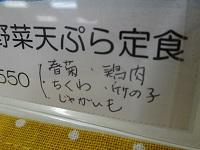 野菜天ぷら定食
550 (春菊・鶏肉
・ちくわ・竹の子
じゃがいも